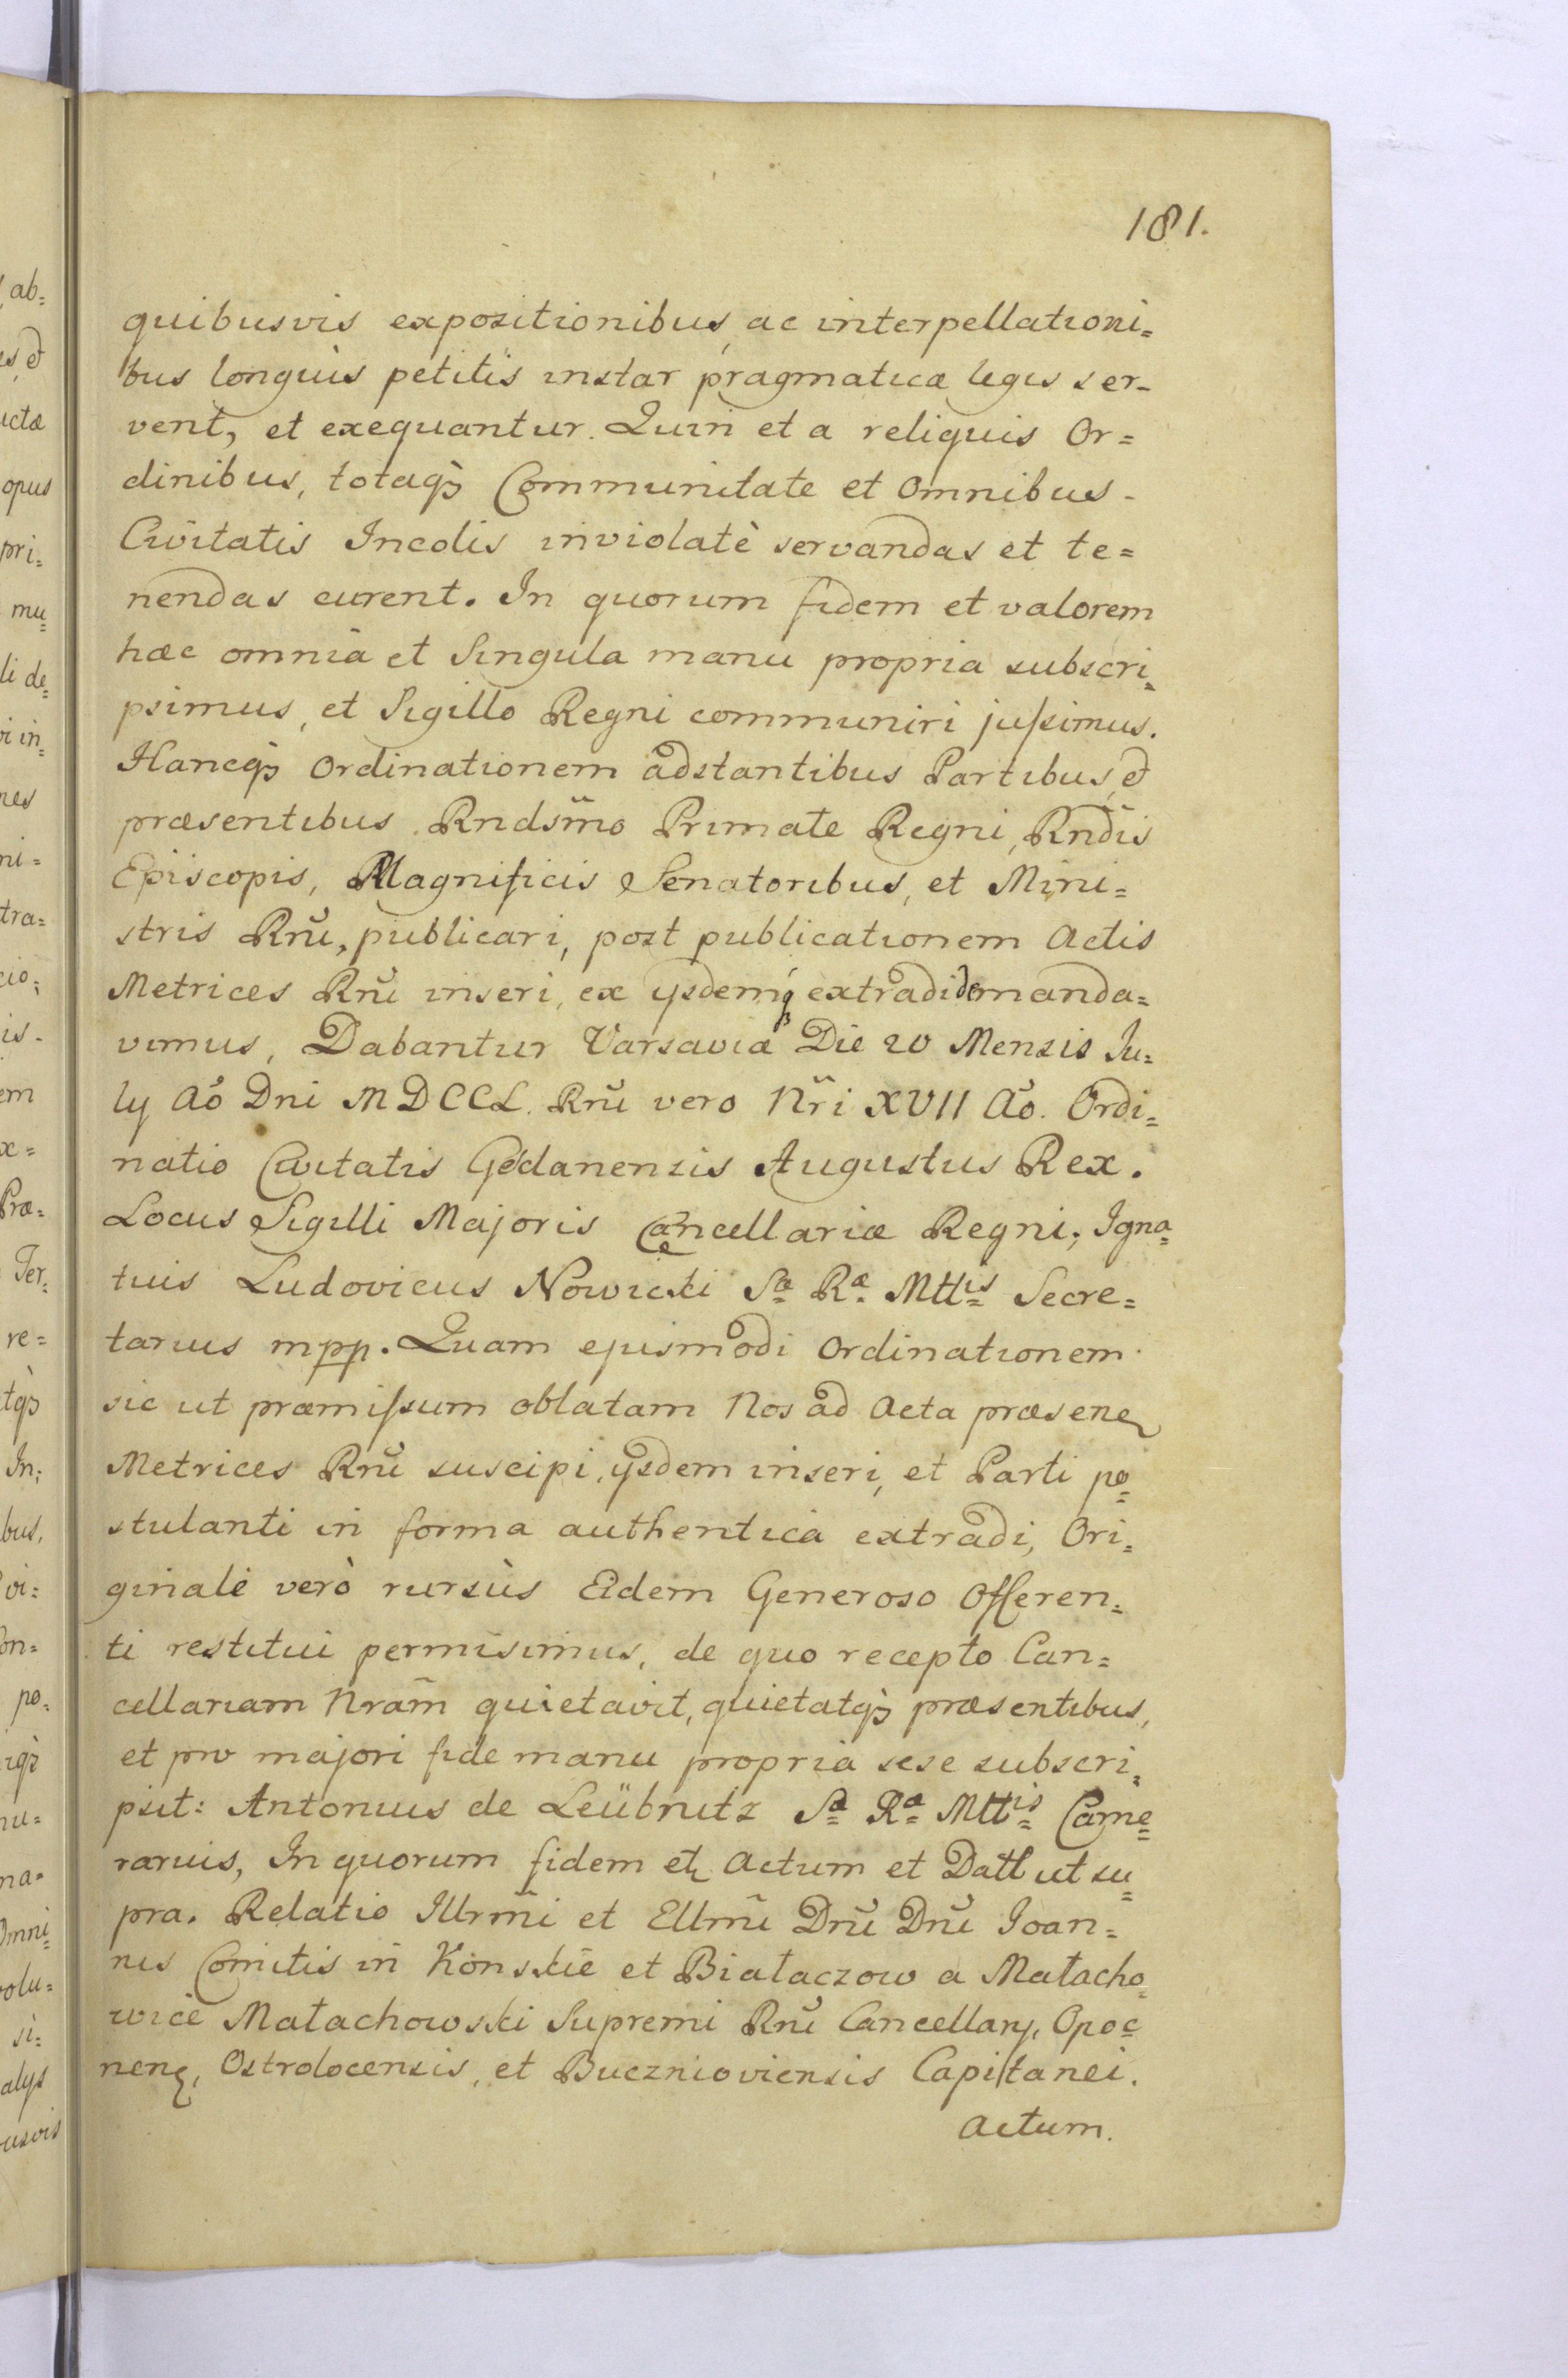 181.
quibusvis expositionibus, ac interpellationi=
bus longiùs petitis instar pragmaticæ legis ser-
vent, et exequantur. Quin et a reliquis Or=
dinibus, totaqȝ Communitate et Omnibus-
Civitatis Incolis inviolatè servandas et te=
nendas curent. In quorum fidem et valorem
hæc omnia et Singula manu propria subscri=
psimus, et Sigillo Regni communiri jussimus.
Hancqȝ Ordinationem adstantibus Partibus, et
præsentibus Rndsm̃o Primate Regni, Rndĩs
Episcopis, Magnificis Senatoribus, et Mini=
stris Rnũ, publicari, post publicationem Actis
Metrices Rnũ inseri, ex ysdemqȝ extradi demanda=
vimus, Dabantur Varsaviæ Die 20 Mensis Ju=
ly Aõ Dni MDCCL. Rnũ vero Nr̃i XVII Aõ. Ordi=
natio Civitatis Gedanensis Augustus Rex.
Locus Sigilli Majoris Cancellariæ Regni, Igna=
tius Ludovicus Nowicki Sæ Ræ Mttis Secre=
tarius mpp. Quam ejusmodi Ordinationem
sic ut præmissum oblatam Nos ad Acta præsenę
Metrices Rnũ suscipi, ysdem inseri, et Parti po=
stulanti in forma authentica extradi, Ori=
ginale verò rursùs Eidem Generoso Offeren=
ti restitui permisimus, de quo recepto Can=
cellariam Nram̃ quietavit, quietatqȝ præsentibus,
et pro majori fide manu propria sese subscri=
psit: Antonius de Leübnitz Sæ Ræ Mttis Came=
rarius, In quorum fidem etc Actum et Datt ut su=
pra. Relatio Illrmĩ et Ellmĩ Dnĩ Dnĩ Joan=
nis Comitis in Konskie et Białaczow a Małacho=
wice Małachowski Supremi Rnũ Cancellary, Opoc=
nenę, Ostrolocensis, et Bucznioviensis Capitanei.
Actum.